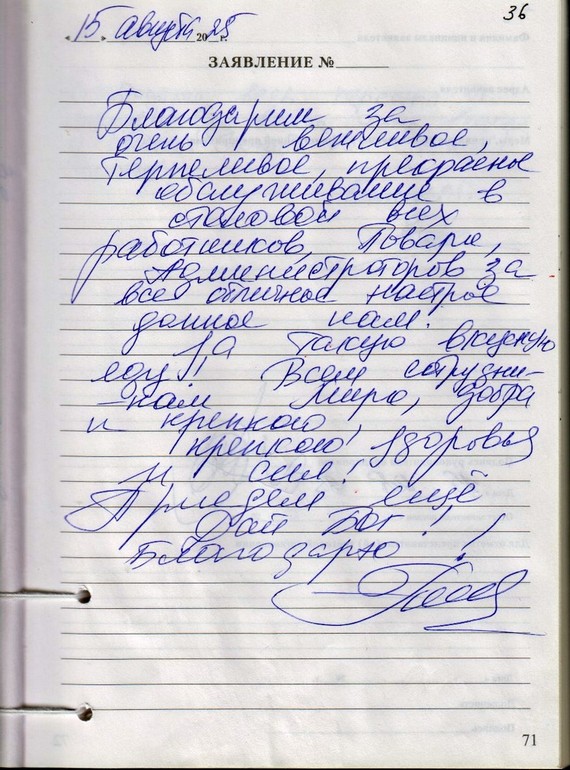 36
« 15 » августа 2025 г.
ЗАЯВЛЕНИЕ №
Благодарим за
очень вежливое,
терпеливое, прекрасные
обслуживание в
столовой всех
работников, Повара,
Администроторов за
все отличное настрое
данное нам.
За такую вкусную
еду!! Всем сотрудни-
кам мира, добра
и крепкого,
крепкого! здоровья
и сил!
Приедем ещё
Дай Бог!
Благодарю!
71